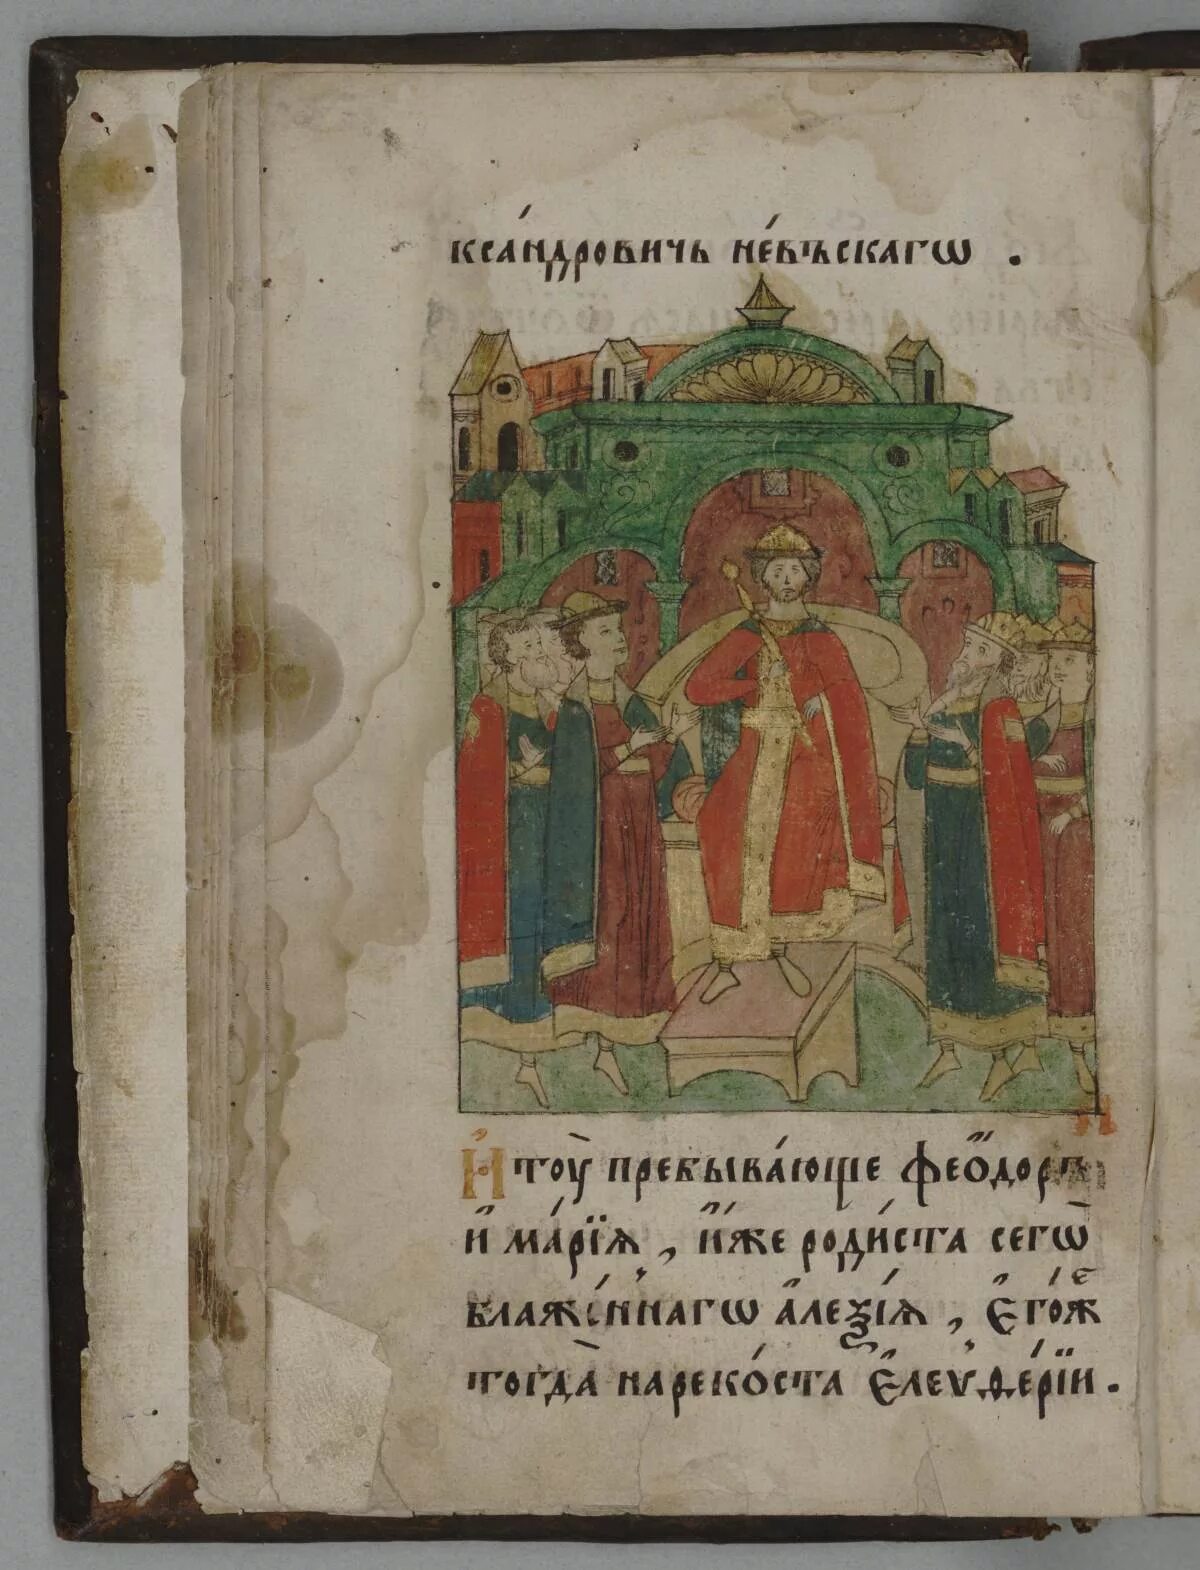 кса́ндровичь не́вѣскагѡ .
И҆ тоу̀ пребыва́юще ѳео́доръ
и҆ ма́рїѧ , и҆́же роди́ста сегѡ̀
блаже́ннагѡ а҆леѯі́ѧ , є҆го́ж е
тогда̀ нареко́ста є҆леѵѳе́рїи .